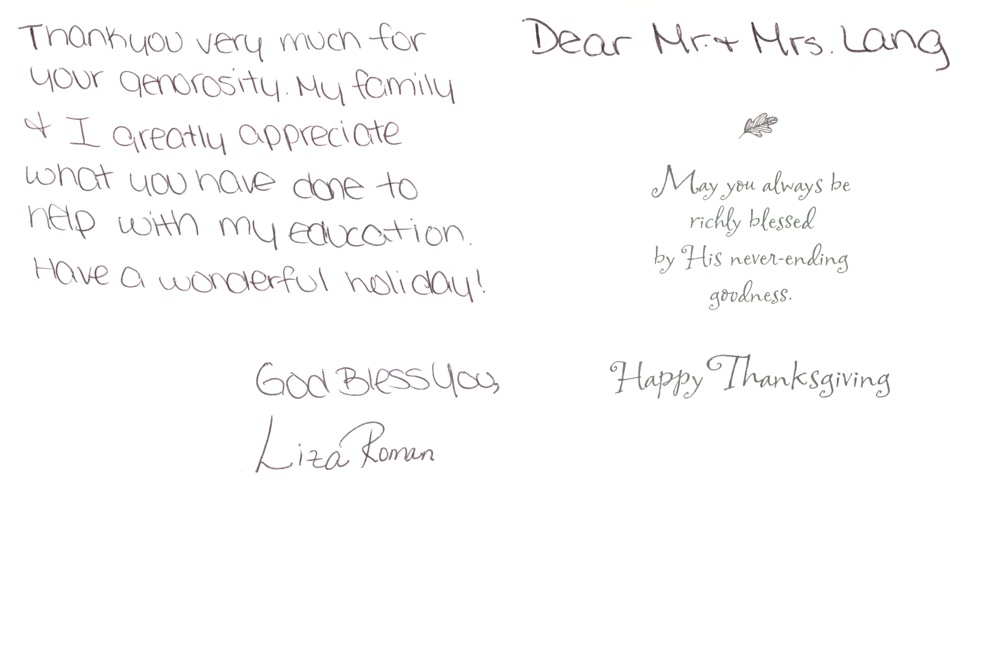 Dear Mr. + Mrs. Lang
May you always be
richly blessed
by His never-ending
goodness.
Happy Thanksgiving
Thankyou very much for
your generosity. My family
& I greatly appreciate
what you have done to
help with my education.
Have a wonderful holiday!
God Bless You,
Liza Roman